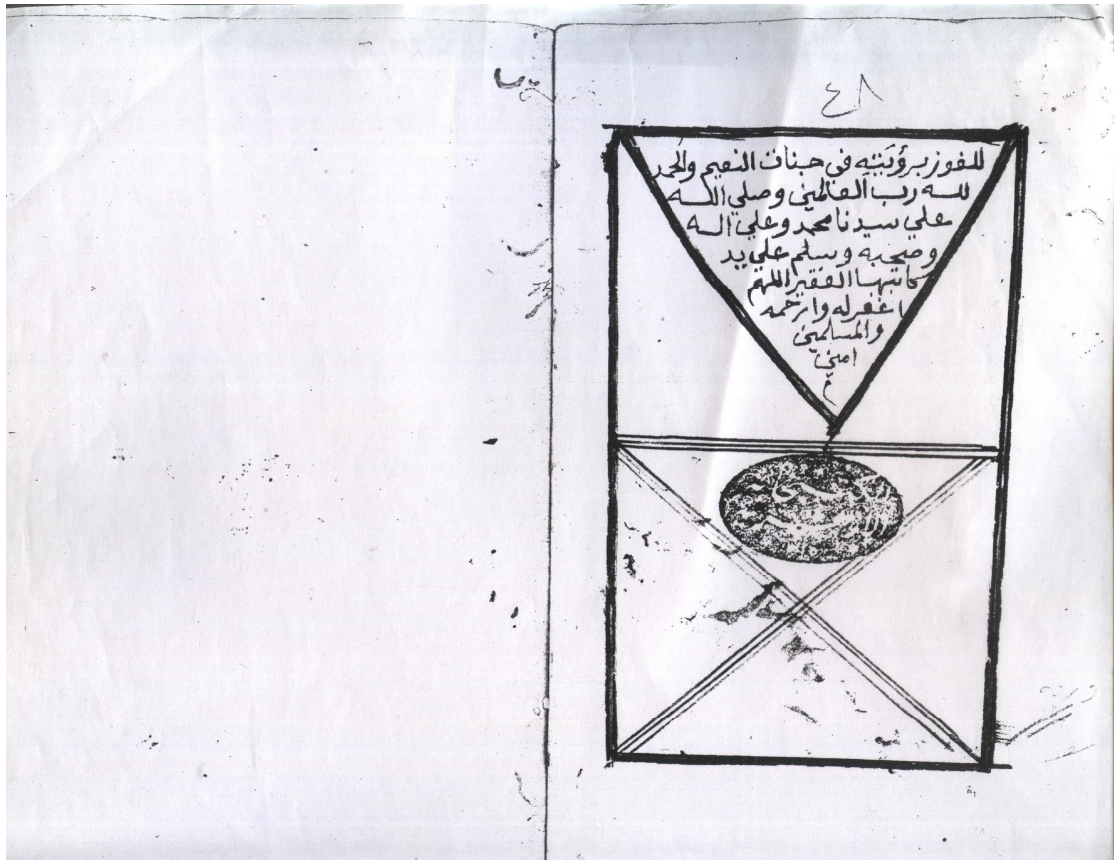 ٤٨
للفوز برؤيته في جنات النعيم والحمد
لله رب العالمين وصلي الله
علي سيدنا محمد وعلي اله
وصحبه وسلم علي يد
كاتبها الفقير اللهم
اغفر له وارحمه
والمسلمين
امين